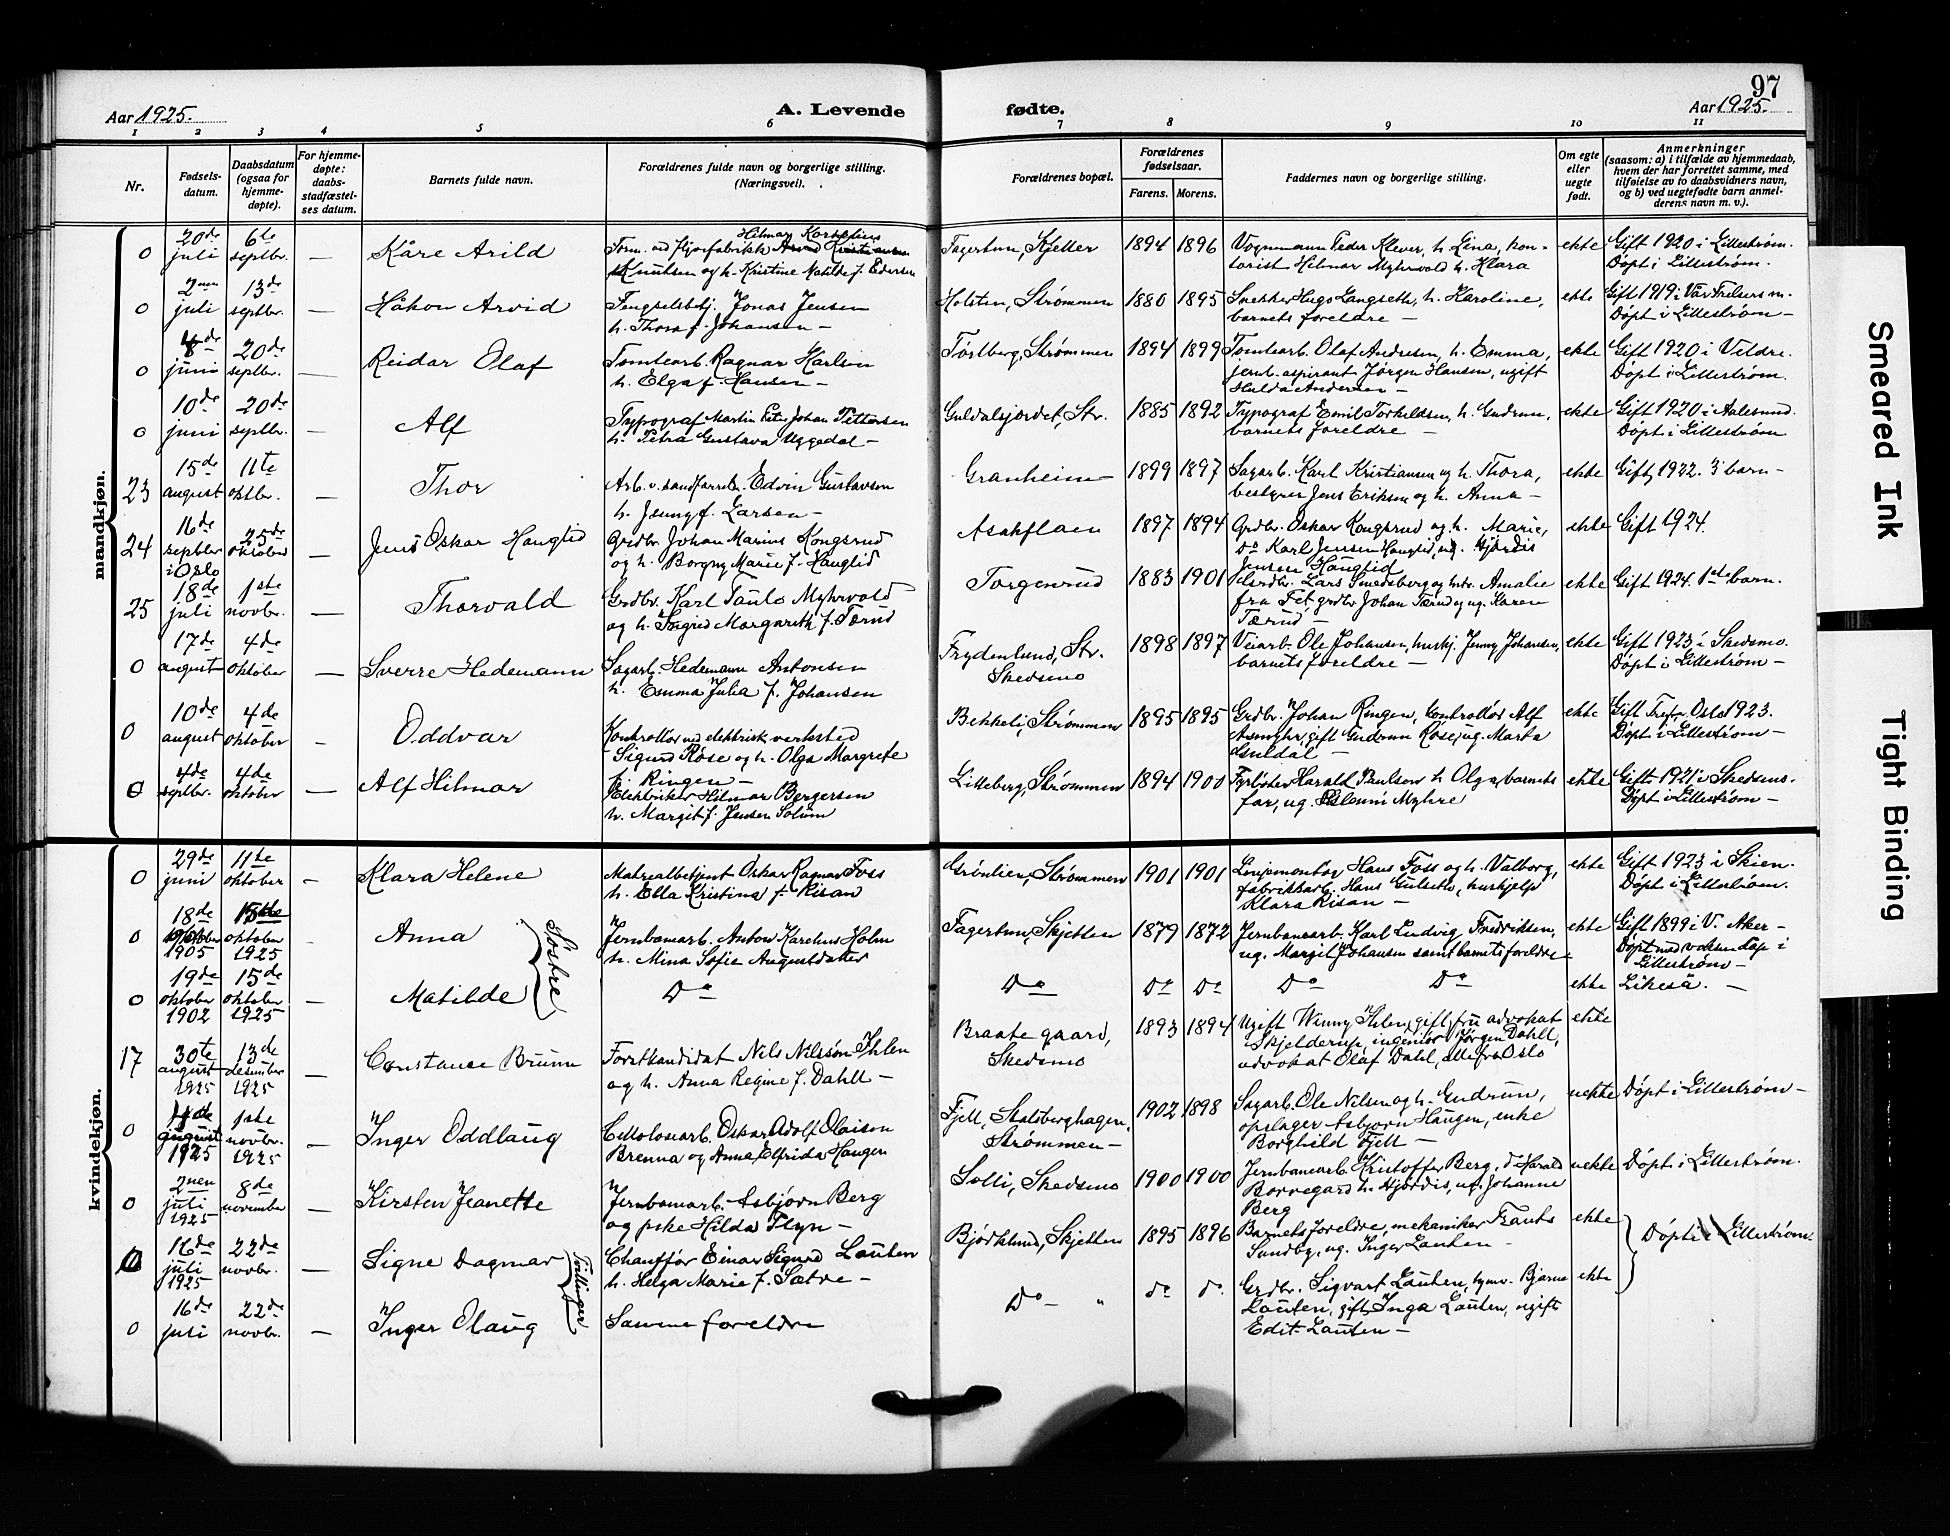 97
Aar 1925.
A. Levende
fødte.
Aar 1925.
1 2 3 4 5 6 7 8 9 10 11
Nr.
Fødsels-
datum.
Daabsdatum
(ogsaa for
hjemme-
døpte).
For hjemme-
døpte:
daabs-
stadfæstel-
ses datum.
Barnets fulde navn.
Forældrenes fulde navn og borgerlige stilling.
(Næringsvei).
Forældrenes bopæl.
Forældrenes
fødselsaar.
Farens. Morens.
Faddernes navn og borgerlige stilling.
Om egte
eller
uegte
født.
Anmerkninger
(saasom: a) i tilfælde av hjemmedaab,
hvem der har forrettet samme, med
tilføielse av to daabsvidners navn,
og b) ved uegtefødte barn anmel-
derens navn m. v.).
mandkjøn.
0 20de juli 6te septbr. — Kåre Arild
Hilmar
Knutsen og h. Kristine Matilde f. Pedersen
Fagertun, Skjetten 1894 1896
Vognmann Peder Klever, h. Lina, kon-
torist Hilmar Myhrvold h. Klara
ekte
Gift 1920 i Lillestrøm.
Døpt i Lillestrøm.
0 2nen juli 13de septbr. — Håkon Arvid
Fengselsbtj. Jonas Jensen
h. Thora f. Johansen —
Holsten, Strømmen 1880 1895
Snekker Hugo Langseth, h. Karoline,
barnets foreldre —
ekte
Gift 1919 i Vår Frelsers m.
Døpt i Lillestrøm —
0 8de juni 20de septbr. — Reidar Olaf
Tomtearb. Ragnar Karlsen
h. Elga f. Hansen —
Strømmen 1894 1899
Tomtearb. Olaf Andresen, h. Emma,
jernb. aspirant Jørgen Hansen, ugift
Hulda Andersen —
ekte
Gift 1920 i Veldre.
Døpt i Lillestrøm.
0 10de juni 20de septbr. — Alf
Typograf Martin Johan Pettersen
h. Petra Gustava Uggedal —
Guldalsjordet, Str. 1885 1892
Typograf Emil Torkildsen, h. Gudrun,
barnets foreldre —
ekte
Gift 1920 i Aalesund.
Døpt i Lillestrøm
23 15de august 11te oktbr. — Thor
Arb. v. Edvin Gustavson
h. Jenny f. Larsen —
Granheim 1899 1897
Sagarb. Karl Kristiansen og h. Thora,
bestyrer Jens Eriksen og h. Anna —
ekte
Gift 1922. 3 barn —
24 16de septbr i Oslo 25de oktober — Jens Oskar Hauglid
Grdbr. Johan Marius Kongsrud
og h. Borgny Marie f. Hauglid
Asakflaen 1897 1894
Grdbr. Oskar Kongsrud og h. Marie,
do Karl Jensen Hauglid, ug. Hjørdis
Jensen Hauglid
ekte
Gift 1924.
25 18de juli 1ste novbr. — Thorvald
Grdbr. Karl Paulo Myhrvold
og h. Ingrid Margareth f. Tærud
Torgerrud 1883 1901
Grdbr. Lars Smedsberg og htr. Amalie
fra Fet, grdbr. Johan Tærud og ug. Karen
Tærud —
ekte
Gift 1924. 1ste barn.
0 17de august 4de oktober — Sverre Hedemann
Sagarb. Hedemann Antonsen
h. Emma Julia f. Johansen
Frydenlund, Str.
Skedsmo
1898 1897
Veiarb. Ole Johansen, huskj. Jenny Johansen,
barnets foreldre —
ekte
Gift 1923 i Skedsmo.
Døpt i Lillestrøm —
0 10de august 4de oktober — Oddvar
Kontrollør ved elektrisk verksted
Sigurd Rose og h. Olga Margrete
f. Ringen —
Bekkeli, Strømmen 1895 1895
Grdbr. Johan Ringen, kontrollør Alf
Asmyhr, gift Gudrun Rose, ug. Marta
Guldal —
ekte
Gift Oslo 1923.
Døpt i Lillestrøm —
0 4de septbr. 4de oktober — Alf Hilmar
Elektriker Hilmar Bergersen
h. Margit f. Jensen Solum
Lilleberg, Strømmen 1894 1900
Harald Paulsen h. Olga, barnets
far, ug. Myhre
ekte
Gift 1921 i Skedsmo.
Døpt i Lillestrøm —
kvindekjøn.
0 29de juni 11te oktober — Klara Helene
Materialbetjent Oskar Ragnar Foss
h. Ella Kristina f. Risan
Grønlien, Strømmen 1901 1901
Linjemontør Hans Foss og h. Valborg,
fabrikkarb. Hans Gulseth, hushjelp
Klara Risan —
ekte
Gift 1923 i Skien.
Døpt i Lillestrøm.
0 18de oktober 1905 15de oktober 1925 — Anna
Søstre
Jernbanearb. Anton Karelius Holm
h. Mina Sofie Augustdatter
Fagertun, Skjetten 1879 1872
Jernbanearb. Karl Ludvig Fredriksen,
ug. Margit Johansen samt barnets foreldre —
ekte
Gift 1899 i V. Aker —
Døpt med voksendåp i
Lillestrøm —
0 19de oktober 1902 15de oktober 1925 — Matilde
Do
Do do do Do Do
ekte
Likeså. —
17 30te august 1925 13de desember 1925 — Constance Bruun
Forstkandidat Nils Nilssøn Ihlen
og h. Anna Regine f. Dahll —
Braate gaard,
Skedsmo
1893 1894
Ugift Wenny Ihlen, gift fru advokat
Skjelderup, ingeniør Jørgen Dahll,
advokat Olaf Dahl, alle fra Oslo
ekte
0 august 1925 1ste novbr. 1925 — Inger Oddlaug
Cellulosearb. Oskar Adolf Olaison
Brenna og Anna Elfrida Haugen
Fjell, Stalsberghagen,
Strømmen —
1902 1898
Sagarb. Ole Nilsen og h. Gudrun,
opslager Asbjørn Haugen, enke
Borghild Fjell —
uekte
Døpt i Lillestrøm —
0 2nen juli 1925 8de november — Kirsten Jeanette
Jernbanearb. Asbjørn Berg
og pike Hilda Flyn —
Solli, Skedsmo 1900 1900
Jernbanearb. Kristoffer Berg, do Harald
Borregard h. Hjørdis, ug. Johanne
Berg
uekte
Døpt i Lillestrøm.
0 16de juli 1925 22de novbr. — Signe Dagmar
Tvillinger
Chauffør Einar Sigurd Lauten
h. Helga Marie f. Sætre —
Bjørklund, Skjetten 1895 1896
Barnets foreldre, mekaniker Frants
Sundby, ug. Inger Lauten —
ekte
Døpt i Lillestrøm.
0 16de juli 22de novbr. — Inger Olaug
Samme foreldre
Do — " do do.
Grdbr. Sigvart Lauten, gymn. Bjarne
Lauten, gift Inga Lauten, ugift
Edit Lauten —
ekte
Smeared Ink
Tight Binding